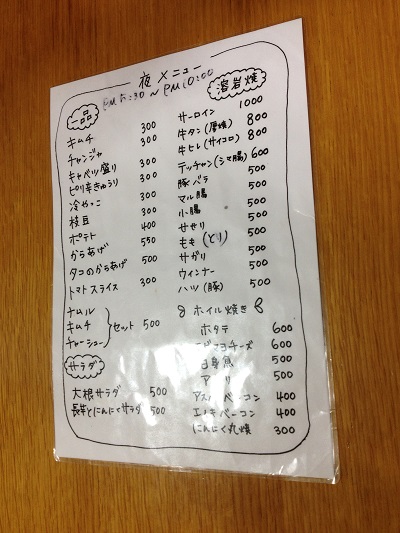 夜メニュー
PM 5:30 〜 PM 10:00
一品
キムチ 300
チャンジャ 300
キャベツ盛り 300
ピリ辛きゅうり 300
冷やっこ 300
枝豆 300
ポテト 400
からあげ 550
タコのからあげ 500
トマトスライス 300
ナムル
キムチ
チャーシュー
セット 500
サラダ
大根サラダ 500
長芋とにんにくサラダ 500
溶岩焼
サーロイン 1000
牛タン(厚焼) 800
牛ヒレ(サイコロ) 800
テッチャン(シマ腸) 600
豚バラ 500
マル腸 500
小腸 500
せせり 500
もも(とり) 500
サガリ 500
ウインナー 500
ハツ(豚) 500
ホイル焼き
ホタテ 600
マヨチーズ 600
白身魚 500
アサリ 500
アスパラベーコン 400
エノキベーコン 400
にんにく丸焼 300